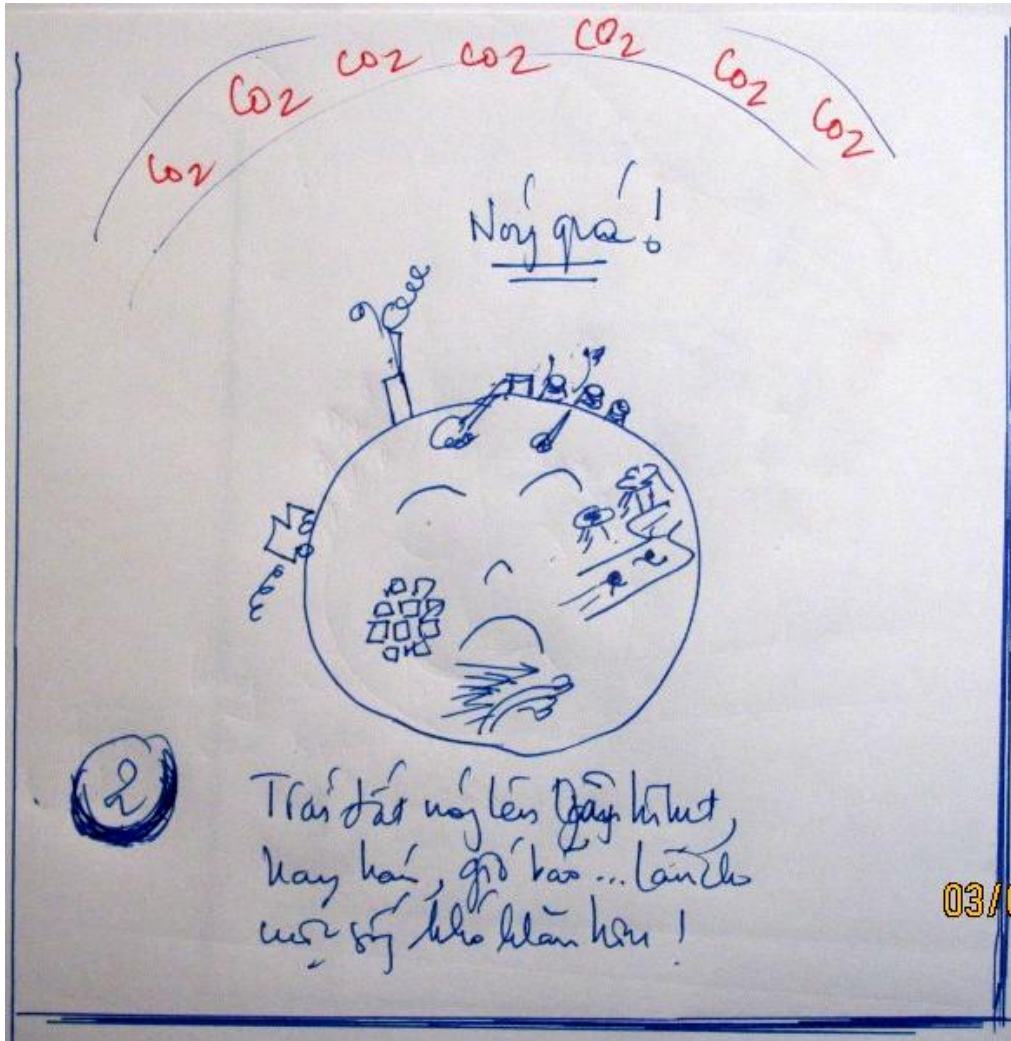 CO2 CO2 CO2 CO2 CO2 CO2 CO2
Nóng quá!
2
Trái đất nóng lên gây lũ lụt,
hay hán, gió bão... làm cho
cuộc sống khó khăn hơn!
03/0